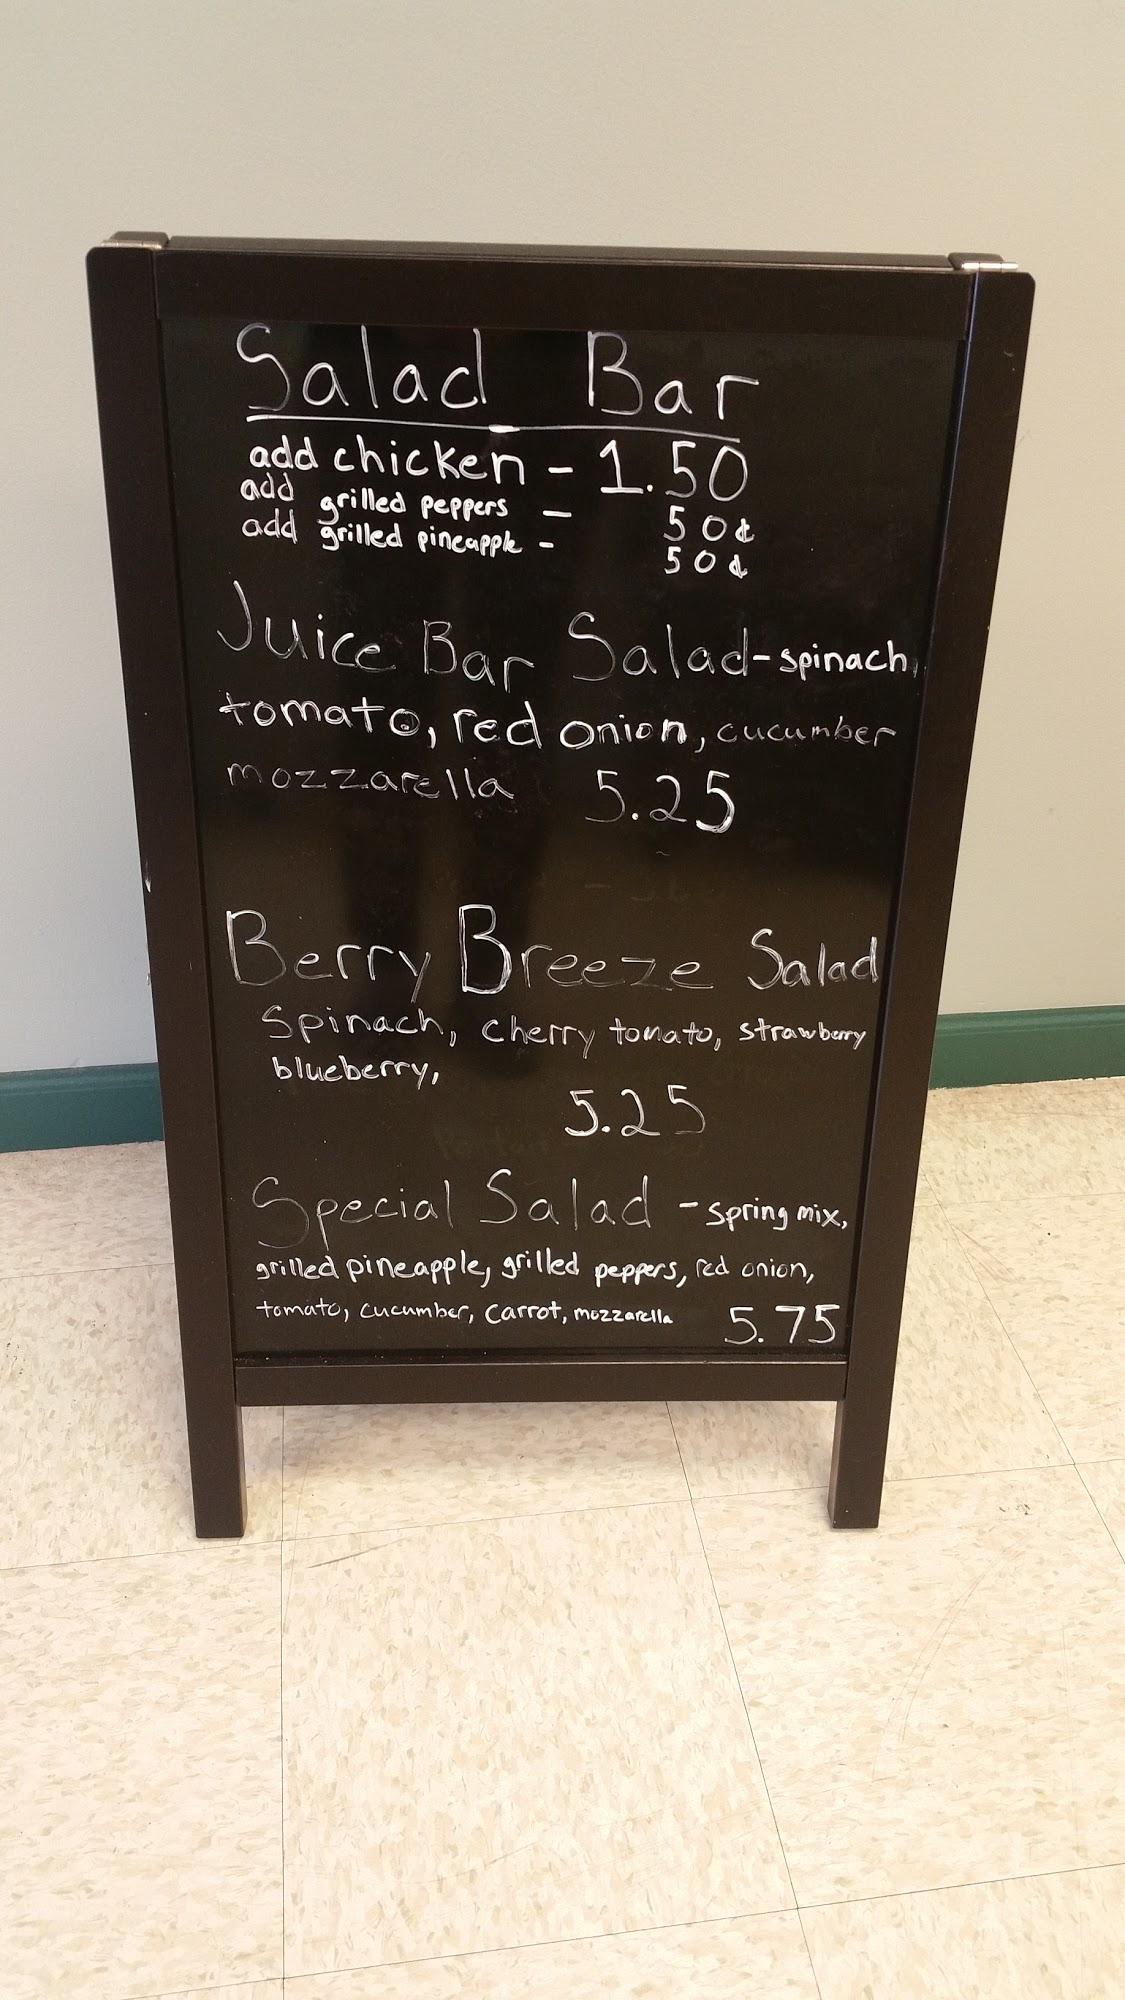 Salad Bar
add chicken - 1.50
add grilled peppers - 50¢
add grilled pineapple - 50¢
Juice Bar Salad - spinach,
tomato, red onion, cucumber
mozzarella 5.25
Berry Breeze Salad
Spinach, cherry tomato, strawberry
blueberry,
5.25
Special Salad - spring mix,
grilled pineapple, grilled peppers, red onion,
tomato, cucumber, carrot, mozzarella 5.75